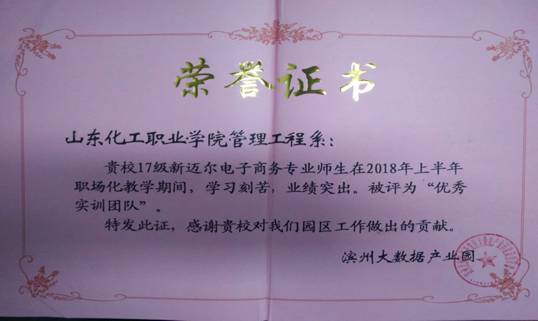 荣誉证书
山东化工职业学院管理工程系：
贵校17级新迈尔电子商务专业师生在2018年上半年
职场化教学期间，学习刻苦，业绩突出。被评为“优秀
实训团队”。
特发此证，感谢贵校对我们园区工作做出的贡献。
滨州大数据产业园